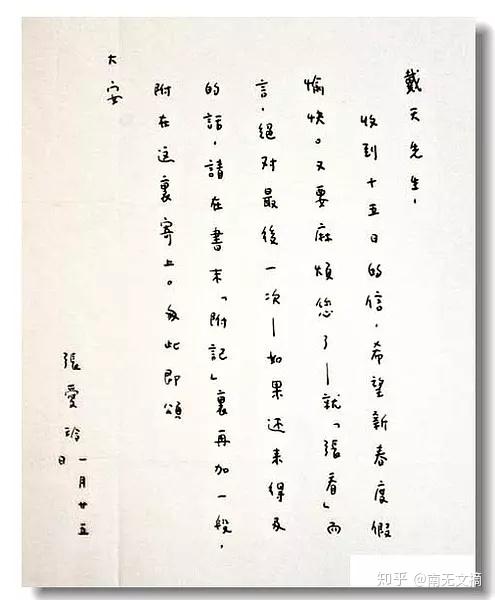 戴天先生，
收到十五日的信，希望新春度假
愉快。又要麻煩您了—就「張看」而
言，絕对最後一次—如果还来得及
的話，請在書末「附記」裏再加一段，
附在这裏寄上。匆此即頌
大安
張愛玲 一月廿五
日
知乎 @南无文摘